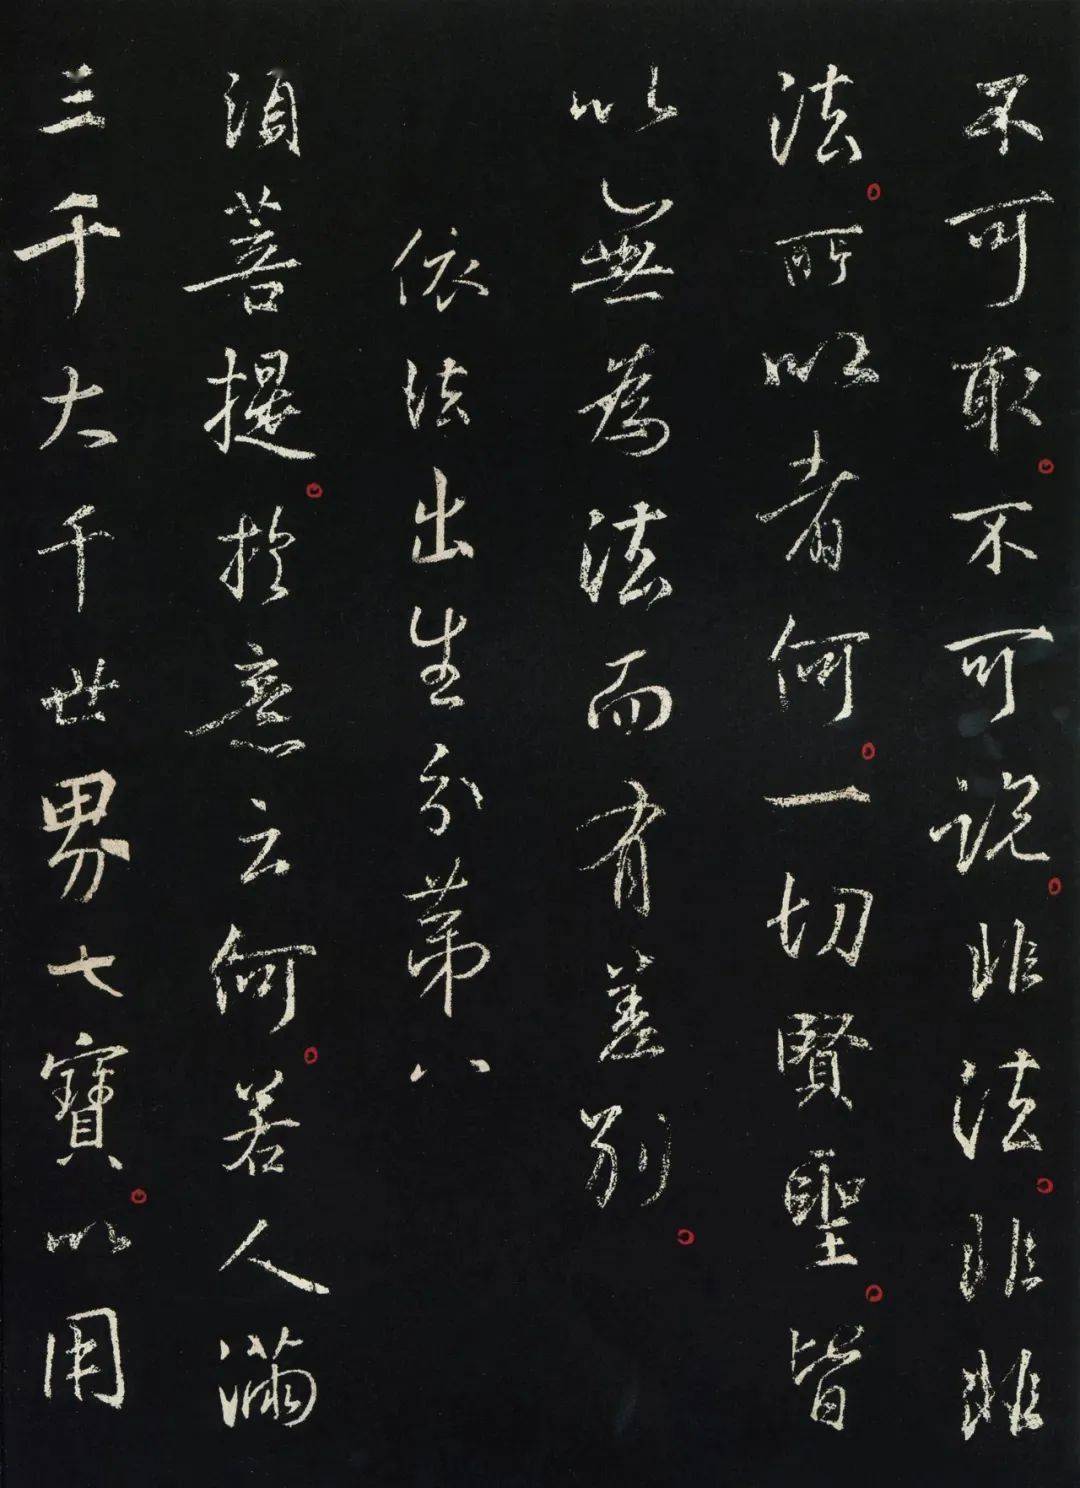 不可取不可說非法非非
法所以者何一切賢聖皆
以無為法而有差別
依法出生分第八
須菩提於意云何若人滿
三千大千世界七寶以用